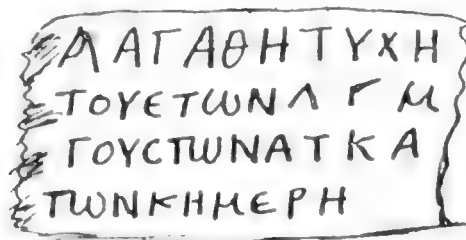 ΑΑΓΑΘΗΤΥΧΗ
ΤΟΥΕΤѠΝΛΓΜ
ΓΟΥϹΠѠΝΑΤΚΑ
ΠѠΝΚΗΜΕΡΗ